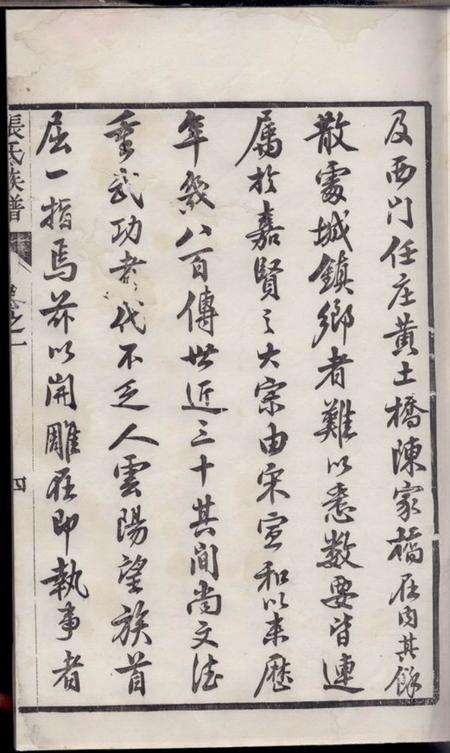 及西門任庄黄土橋陳家橋在内其餘
散處城鎮鄉者難以悉數要皆連
屬於嘉賢之大宗由宋宣和以来歷
年幾八百傳世近三十其间尚文德
重武功者代不乏人雲陽望族首
屈一指焉茲以開雕在即執事者
張氏族譜
卷之一
四